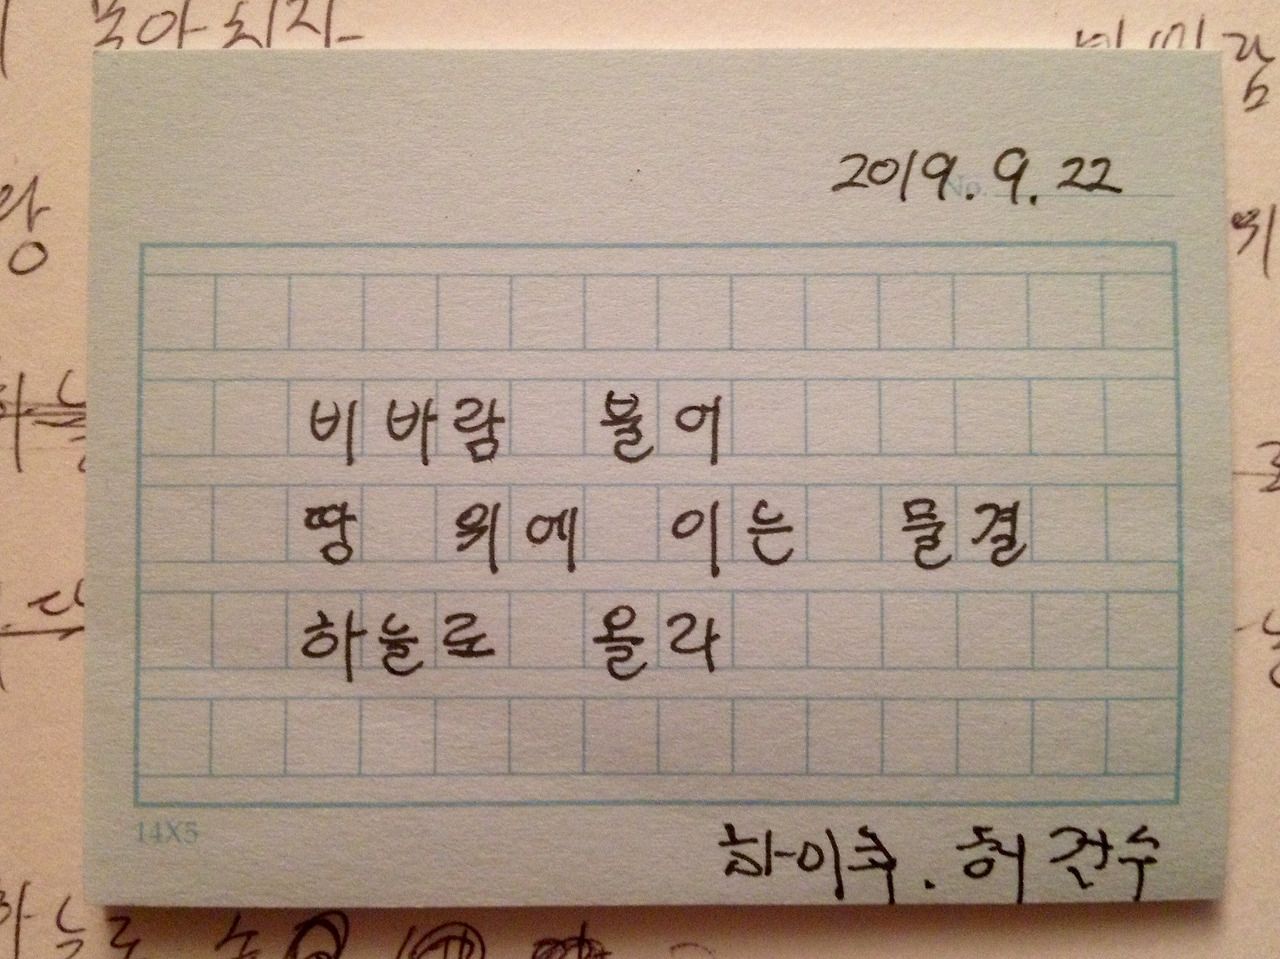 높아지자
2019.9.22
No.
비바람 불어
땅 위에 이는 물결
하늘로 올라
14X5
하이쿠. 허건수
하늘로